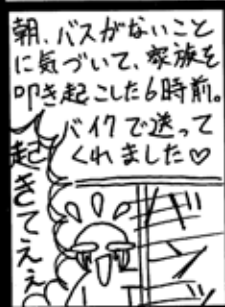 朝、バスがないこと
に気づいて、家族を
叩き起こした6時前。
バイクで送って
くれました♡
起きてえぇ